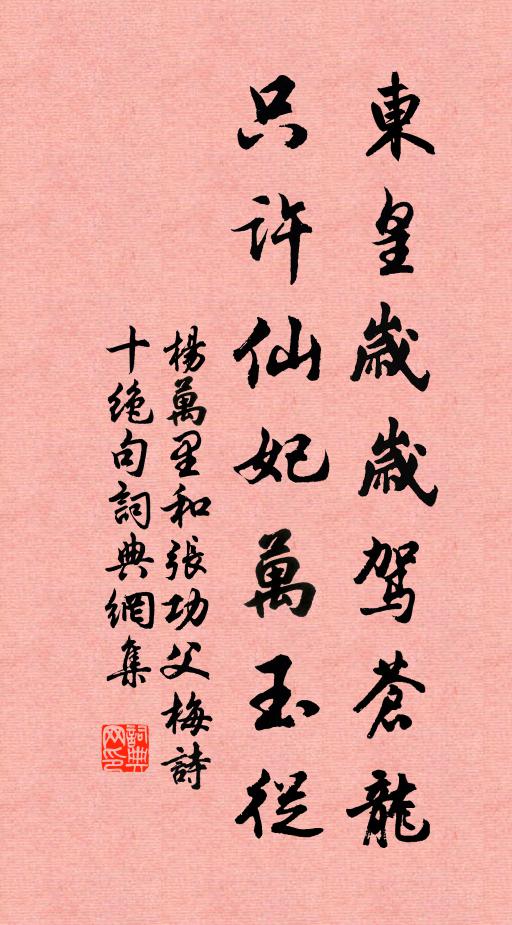 東皇歲歲駕蒼龍
只許仙妃萬玉從
楊萬里和張功父梅詩
十絕句詞典網集
詞典網印